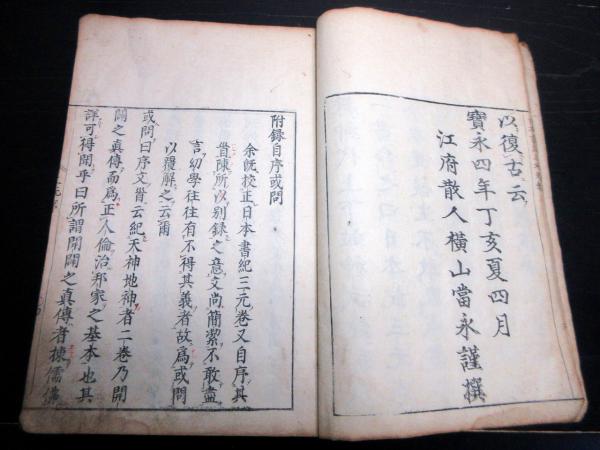 以復古云
寶永四年丁亥夏四月
江府散人橫山當永謹撰
附録自序或問
余既校正日本書紀三元卷又自序其
昝陳所以別録之意文尚簡潔不敢盡
言幼學往往有不得其義者故爲或問
以覆解之云爾
或問曰序文昝云紀天神地神者二卷乃開
闢之真傳而爲正人倫治邦家之基本也其
詳可得聞乎曰所謂開闢之真傳者據儒佛